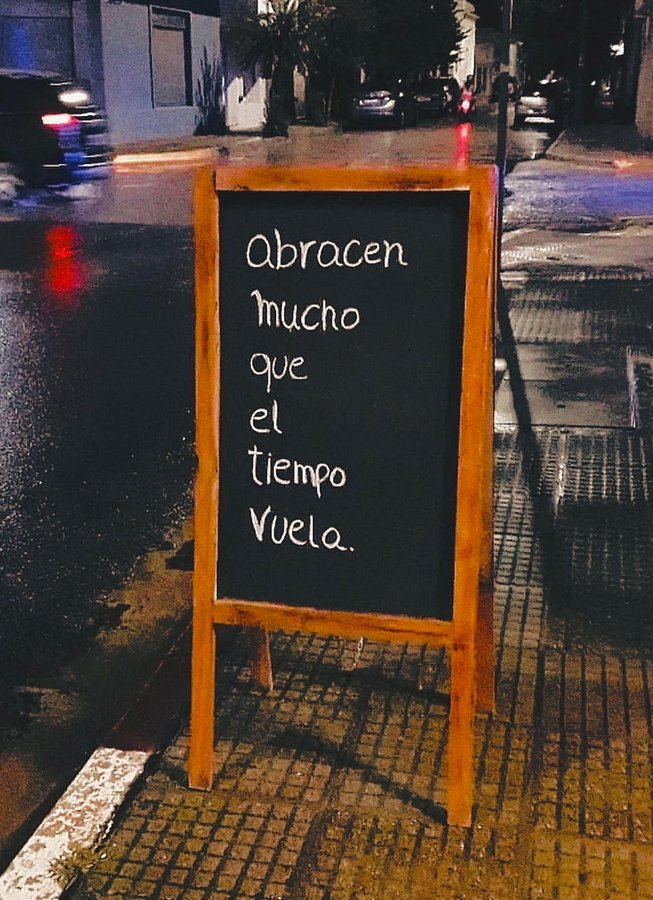 abracen
mucho
que
el
tiempo
vuela.